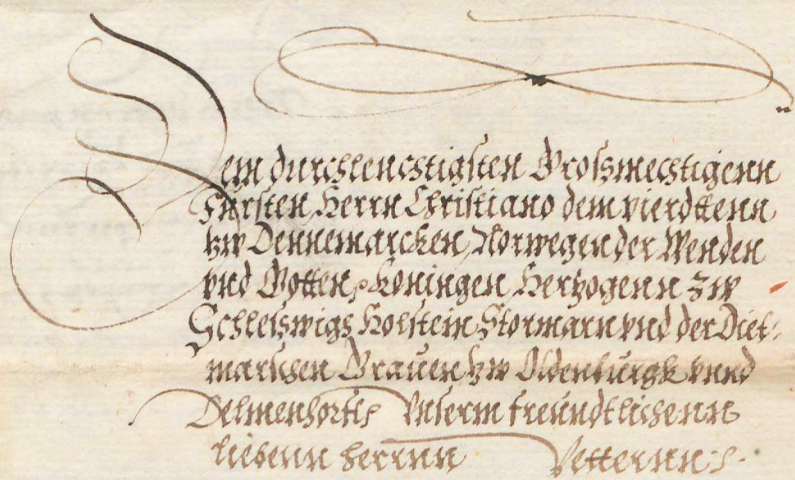 Dem durchleuchtigsten Grosmechtigenn
Fursten Herrn Christiano dem vierdtenn
zw Dennemarcken, Norwegen der Wenden
vnd Gotten, Koningen, Hertzogenn zw
Schleiswigs Holstein Stormarn vnd der Diet-
marschen Grauen zw Oldenburgk vnnd
Delmenhorst, Vnserm freundtlichenn
liebenn herrnn Vetternn: